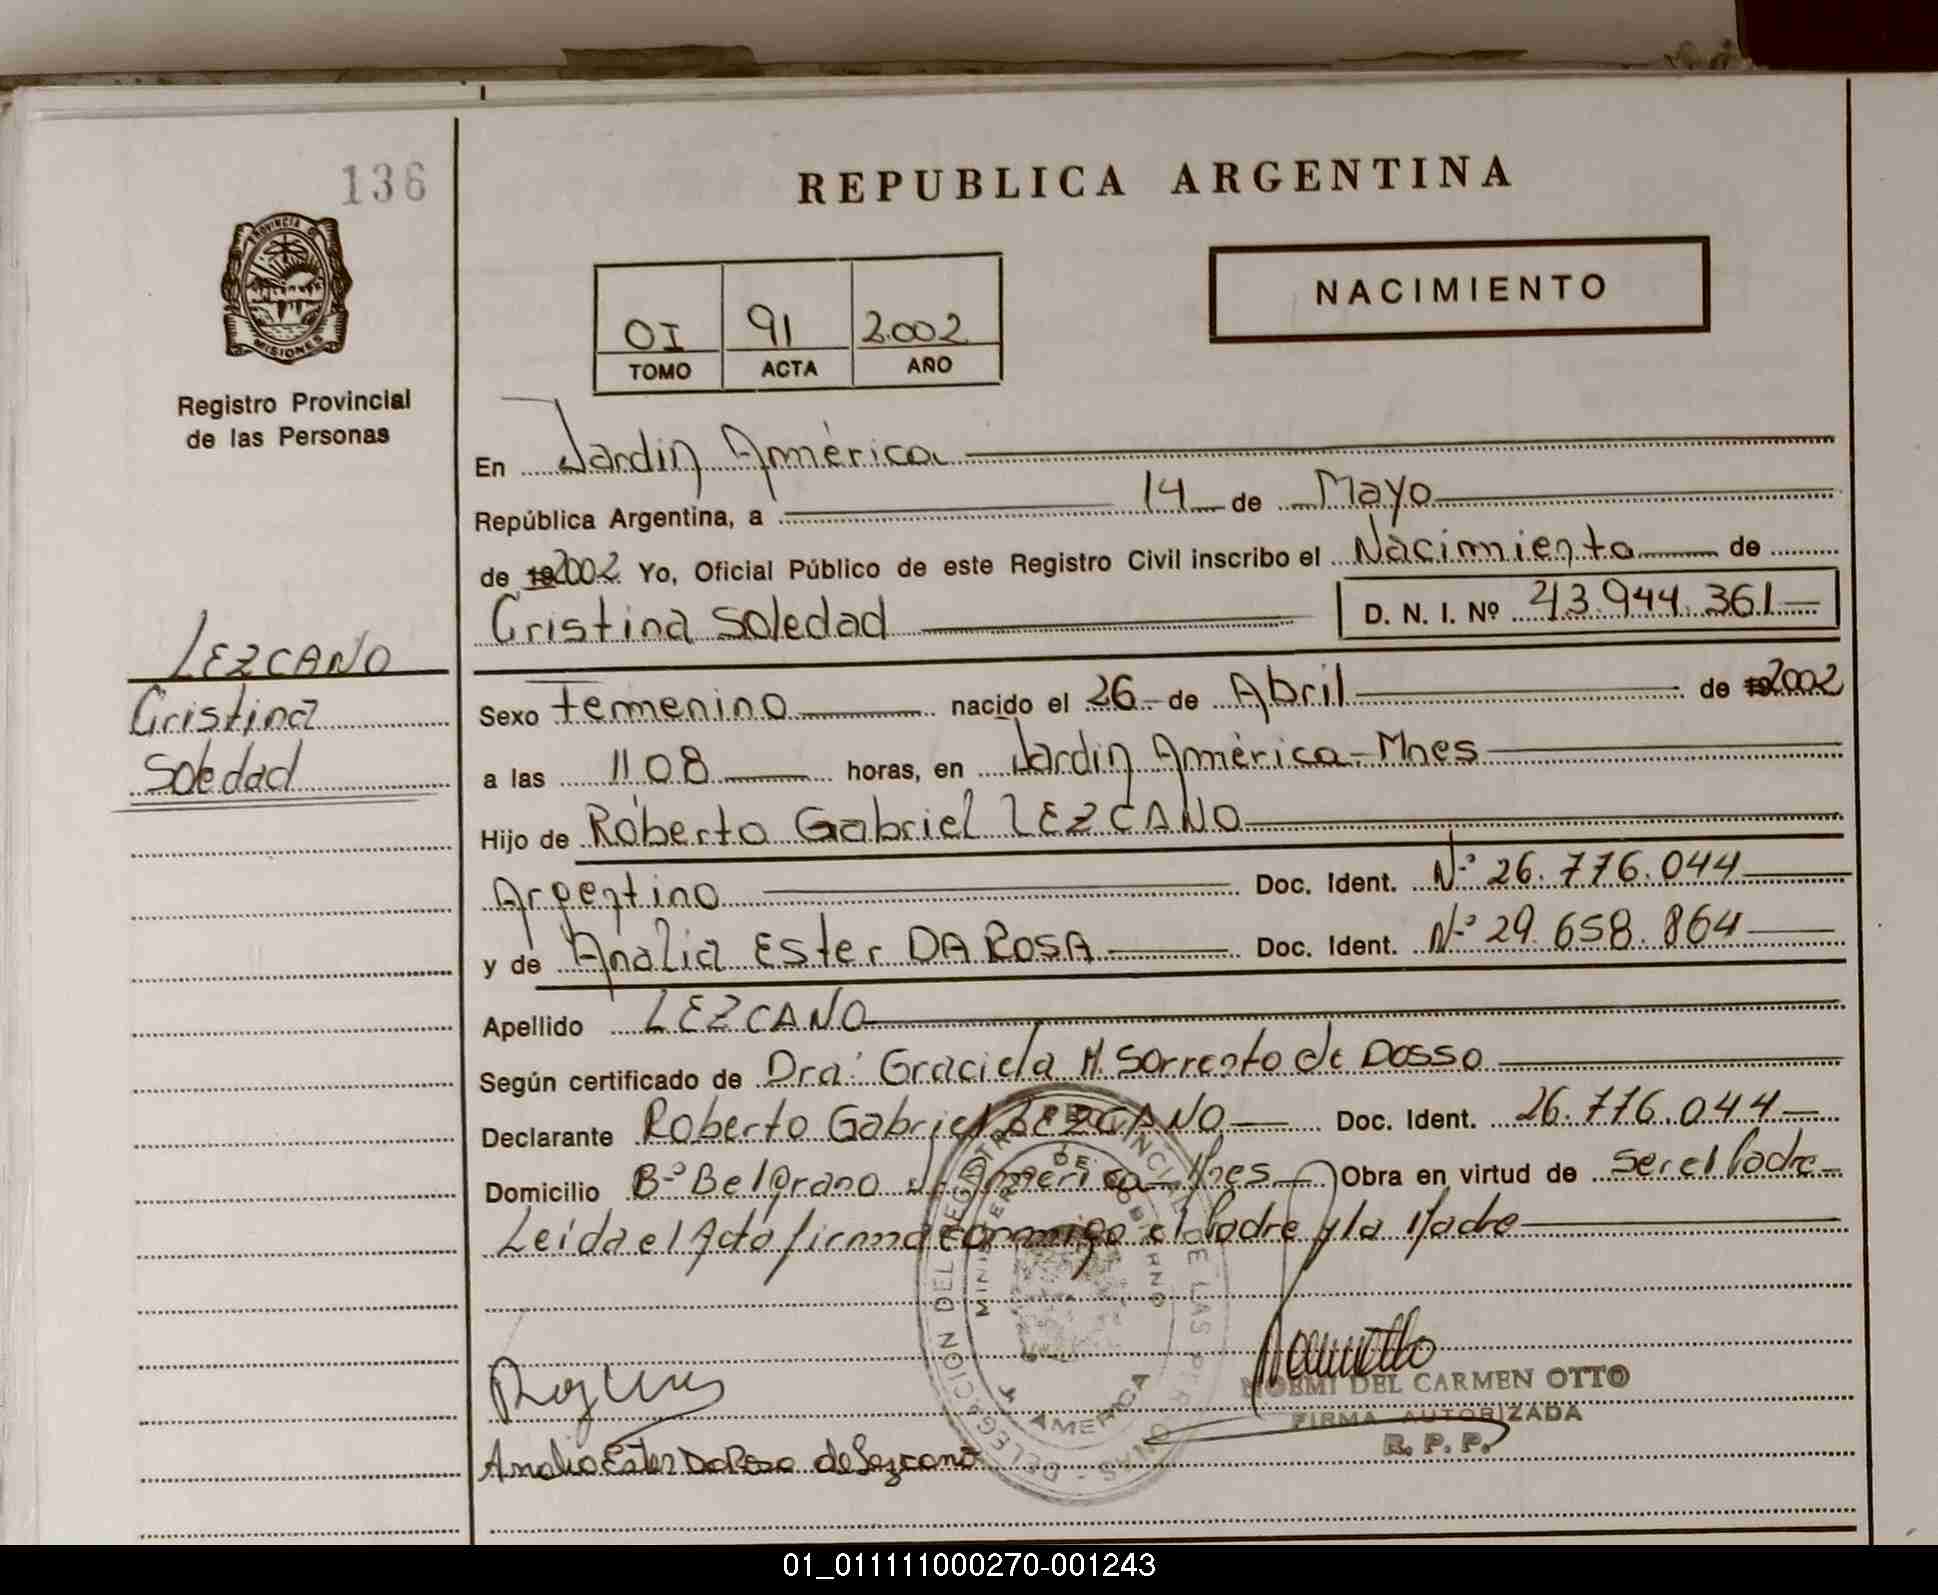 136
PROVINCIA DE
MISIONES
Registro Provincial
de las Personas
LEZCANO
Cristina
Soledad
REPUBLICA ARGENTINA
NACIMIENTO
OI 91 2.002
TOMO ACTA AÑO
En Jardin América
República Argentina, a 14 de Mayo
de 192002 Yo, Oficial Público de este Registro Civil inscribo el Nacimiento de
Cristina Soledad D. N. I. Nº 43.944.361
Sexo Femenino nacido el 26 de Abril de 192002
a las 11.08 horas, en Jardin América-Mnes
Hijo de Roberto Gabriel LEZCANO
Argentino Doc. Ident. Nº 26.776.044
y de Analia Ester DA ROSA Doc. Ident. Nº 29.658.864
Apellido LEZCANO
Según certificado de Dra: Graciela M. Sorrento de Dosso
Declarante Roberto Gabriel LEZCANO Doc. Ident. 26.776.044
Domicilio Bº Belgrano J. America Mnes Obra en virtud de ser el Padre
Leída el Acta firma conmigo el Padre y la Madre
DELEGACION DEL REGISTRO PROVINCIAL DE LAS PERSONAS
MINISTERIO DE GOBIERNO
J. AMERICA
NOEMI DEL CARMEN OTTO
FIRMA AUTORIZADA
R. P. P.
Analia Ester Da Rosa de Lezcano
01_011111000270-001243